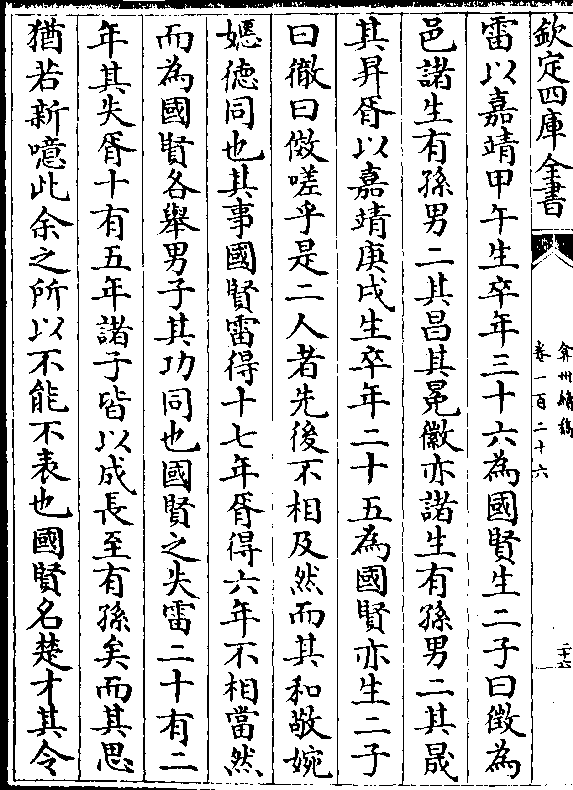 欽定四庫全書
弇州續稿
卷一百二十六
二十六
雷以嘉靖甲午生卒年三十六為國賢生二子曰徵為
邑諸生有孫男二其昌其冕徽亦諸生有孫男二其晟
其昇胥以嘉靖庚戌生卒年二十五為國賢亦生二子
曰徹曰儆嗟乎是二人者先後不相及然而其和敬婉
嫕德同也其事國賢雷得十七年胥得六年不相當然
而為國賢各舉男子其功同也國賢之失雷二十有二
年其失胥十有五年諸子皆以成長至有孫矣而其思
猶若新噫此余之所以不能不表也國賢名楚才其令